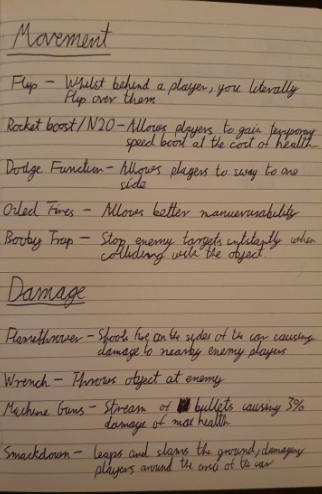 Movement
Flip - Whilst behind a player, you literally
flip over them
Rocket boost/N2O - Allows players to gain temporary
speed boost at the cost of health
Dodge Function - Allows players to sway to one
side
Oiled Tires - Allows better manueverability
Booby Trap - Stop enemy targets when
colliding with the object
Damage
Flamethrower - Shoots fire on the sides of the car causing
damage to nearby enemy players
Wrench - Throws object at enemy
Machine Guns - Stream of bullets causing 3%
damage of max health
Smackdown - Leaps and slams the ground, damaging
players around the area of the car